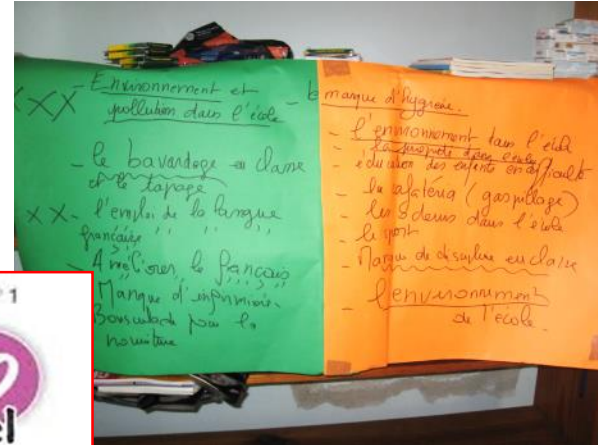 XXX - Environnement et
pollution dans l'école
- le bavardage en classe
et le tapage
XX - l'emploi de la langue
française " " "
- Améliorer le français
- Manque d'infirmière
- Bousculade pour la
nourriture
- manque d'hygiène.
- l'environnement dans l'école
- la propreté dans l'école
- éducation des enfants en difficulté
- la cafétéria (gaspillage)
- les odeurs dans l'école
- le sport
- Manque de discipline en classe
- l'environnement
de l'école.
° 1
el